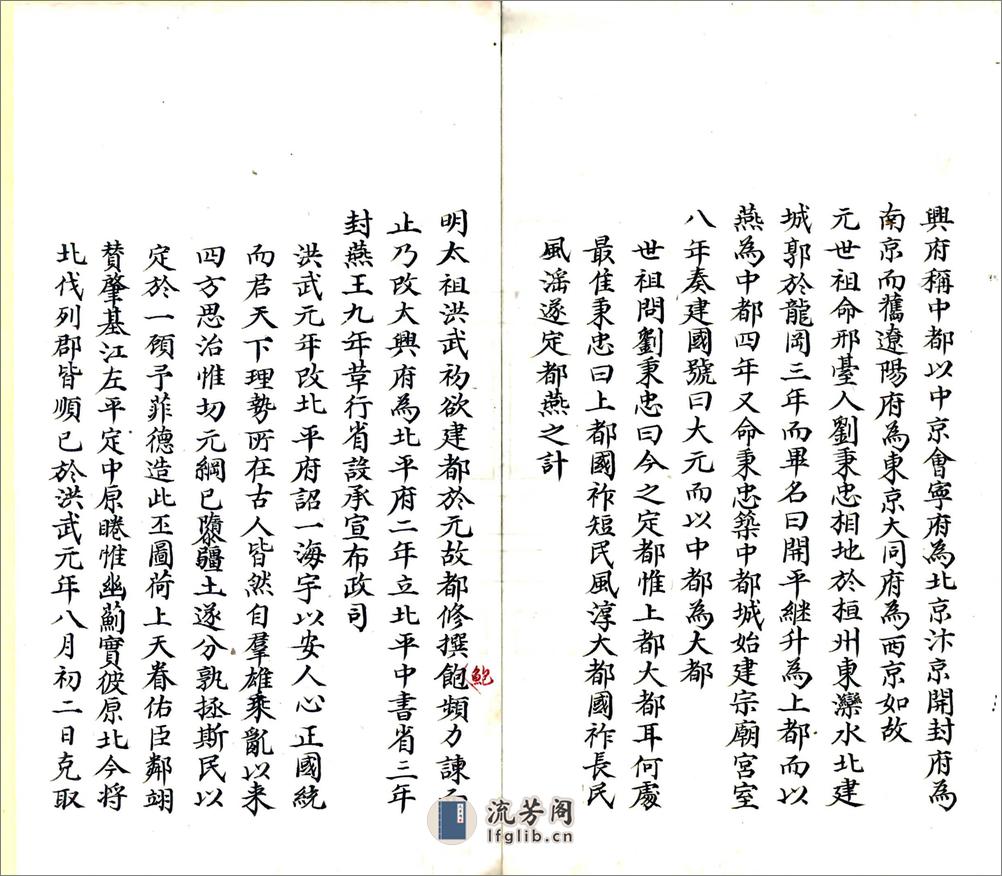 興府稱中都以中京會寧府為北京汴京開封府為
南京而舊遼陽府為東京大同府為西京如故
元世祖命邢臺人劉秉忠相地於桓州東灤水北建
城郭於龍岡三年而畢名曰開平継升為上都而以
燕為中都四年又命秉忠築中都城始建宗廟宮室
八年奏建國號曰大元而以中都為大都
世祖問劉秉忠曰今之定都惟上都大都耳何處
最佳秉忠曰上都國祚短民風淳大都國祚長民
風滛遂定都燕之計
明太祖洪武初欲建都於元故都修撰飽頻力諫而
鮑
止乃改太興府為北平府二年立北平中書省三年
封燕王九年草行省設承宣布政司
洪武元年改北平府詔一海宇以安人心正國統
而君天下理勢所在古人皆然自羣雄乘亂以来
四方思治惟切元綱已隳疆土遂分孰拯斯民以
定於一顧予菲德造此丕圖荷上天眷佑臣鄰翊
賛肇基江左平定中原睠惟幽薊實彼原北今將
北伐列郡皆順已於洪武元年八月初二日克取
流芳阁
lfglib.cn